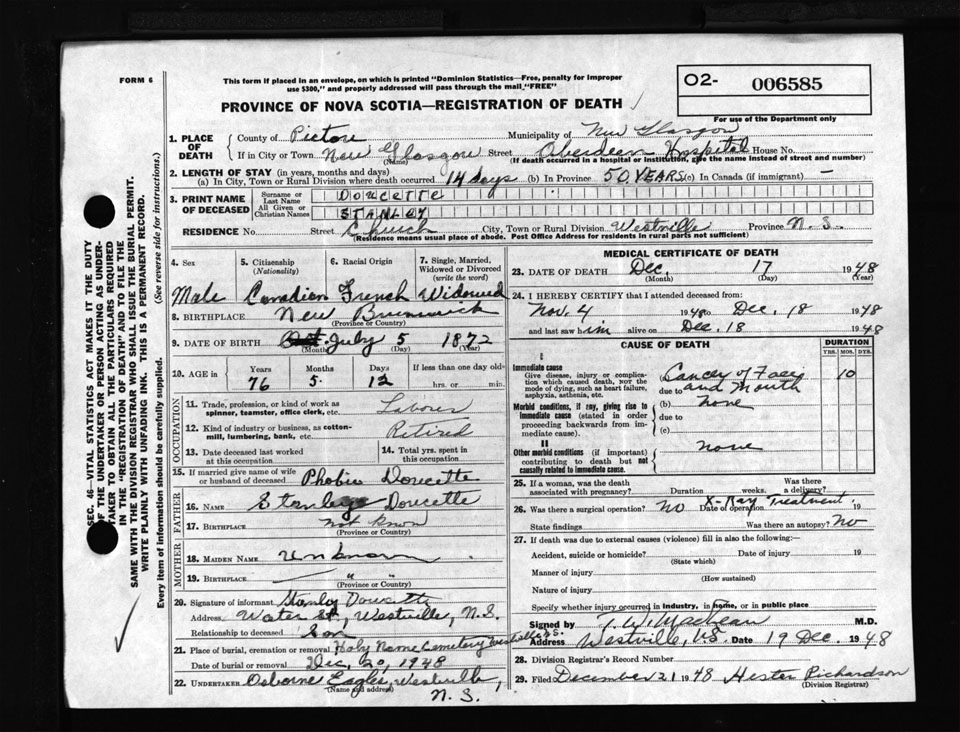 FORM 6
This form if placed in an envelope, on which is printed "Dominion Statistics—Free, penalty for improper
use $300," and properly addressed will pass through the mail "FREE"
02- 006585
PROVINCE OF NOVA SCOTIA—REGISTRATION OF DEATH
For use of the Department only
1. PLACE OF DEATH County of Pictou Municipality of New Glasgow
If in City or Town New Glasgow Street Aberdeen Hospital House No.
(Name) (If death occurred in a hospital or institution, give the name instead of street and number)
2. LENGTH OF STAY (in years, months and days)
(a) In City, Town or Rural Division where death occurred 14 days (b) In Province 50 YEARS (c) In Canada (if immigrant) —
3. PRINT NAME OF DECEASED Surname or Last Name DOUCETTE
All Given or Christian Names STANLEY
RESIDENCE No. Street Church City, Town or Rural Division Westville Province N.S.
(Residence means usual place of abode. Post Office Address for residents in rural parts not sufficient)
4. Sex 5. Citizenship (Nationality) 6. Racial Origin 7. Single, Married, Widowed or Divorced (write the word)
Male Canadian French Widowed
8. BIRTHPLACE New Brunswick
(Province or County)
9. DATE OF BIRTH July 5 1872
(Month) (Day) (Year)
10. AGE in Years Months Days If less than one day old
76 5 12 hrs. or min.
OCCUPATION
11. Trade, profession, or kind of work as spinner, teamster, office clerk, etc. Labour
12. Kind of industry or business, as cotton-mill, lumbering, bank, etc. Retired
13. Date deceased last worked at this occupation 14. Total yrs. spent in this occupation
15. If married give name of wife or husband of deceased Phobie Doucette
FATHER
16. Name Stanley Doucette
17. Birthplace not known
(Province or Country)
MOTHER
18. MAIDEN NAME unknown
19. BIRTHPLACE — " "
(Province or Country)
20. Signature of informant Stanley Doucette
Address Water St., Westville, N.S.
Relationship to deceased Son
21. Place of burial, cremation or removal Holy Name Cemetery Westville N.S.
Date of burial or removal Dec, 20, 1948
22. UNDERTAKER Osborne Eagles, Westville,
(Name and address) N.S.
MEDICAL CERTIFICATE OF DEATH
23. DATE OF DEATH Dec, 17 1948
(Month) (Day) (Year)
24. I HEREBY CERTIFY that I attended deceased from
Nov. 4 1948 to Dec. 18 1948
and last saw him alive on Dec. 18 1948
CAUSE OF DEATH DURATION
YRS. MOS. DYS.
I
Immediate cause
Give disease, injury or complication which caused death, not the mode of dying, such as heart failure, asphyxia, asthenia, etc.
Cancer of Face 10
due to and Mouth
Morbid conditions, if any, giving rise to immediate cause (stated in order proceeding backwards from immediate cause).
(b) none
due to
(c)
II
Other morbid conditions (if important) contributing to death but not causally related to immediate cause.
none
25. If a woman, was the death associated with pregnancy? Duration weeks. Was there a delivery?
26. Was there a surgical operation? No Date of operation X-Ray Treatment. 19
State findings Was there an autopsy? No
27. If death was due to external causes (violence) fill in also the following:—
Accident, suicide or homicide? Date of injury 19
(State which)
Manner of injury
(How sustained)
Nature of injury
Specify whether injury occurred in industry, in home, or in public place
Signed by MacBean M.D.
Address Westville, N.S. Date 19 Dec. 1948
28. Division Registrar's Record Number
29. Filed December 21 1948 Hester Richardson
(Division Registrar)
SEC. 46—VITAL STATISTICS ACT MAKES IT THE DUTY
OF THE UNDERTAKER OR PERSON ACTING AS UNDER-
TAKER TO OBTAIN ALL THE PARTICULARS REQUIRED
IN THE "REGISTRATION OF DEATH" AND TO FILE THE
SAME WITH THE DIVISION REGISTRAR WHO SHALL ISSUE THE BURIAL PERMIT.
WRITE PLAINLY WITH UNFADING INK. THIS IS A PERMANENT RECORD.
Every item of information should be carefully supplied. (See reverse side for instructions.)